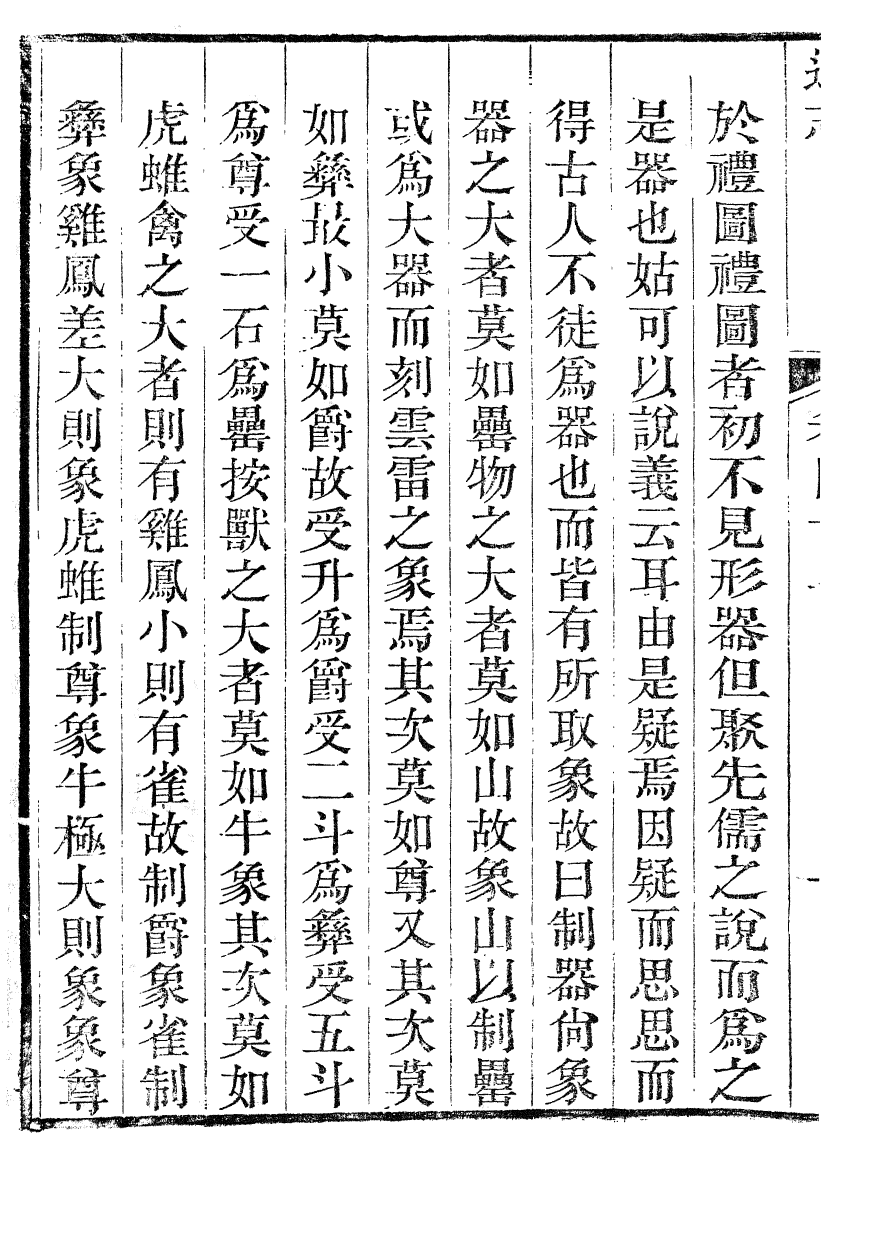 於禮圖禮圖者初不見形器但聚先儒之說而爲之
是器也姑可以說義云耳由是疑焉因疑而思思而
得古人不徒爲器也而皆有所取象故曰制器尙象
器之大者莫如罍物之大者莫如山故象山以制罍
或爲大器而刻雲雷之象焉其次莫如尊又其次莫
如彝最小莫如爵故受升爲爵受二斗爲彝受五斗
爲尊受一石爲罍按獸之大者莫如牛象其次莫如
虎蜼禽之大者則有雞鳳小則有雀故制爵象雀制
彝象雞鳳差大則象虎蜼制尊象牛極大則象象尊